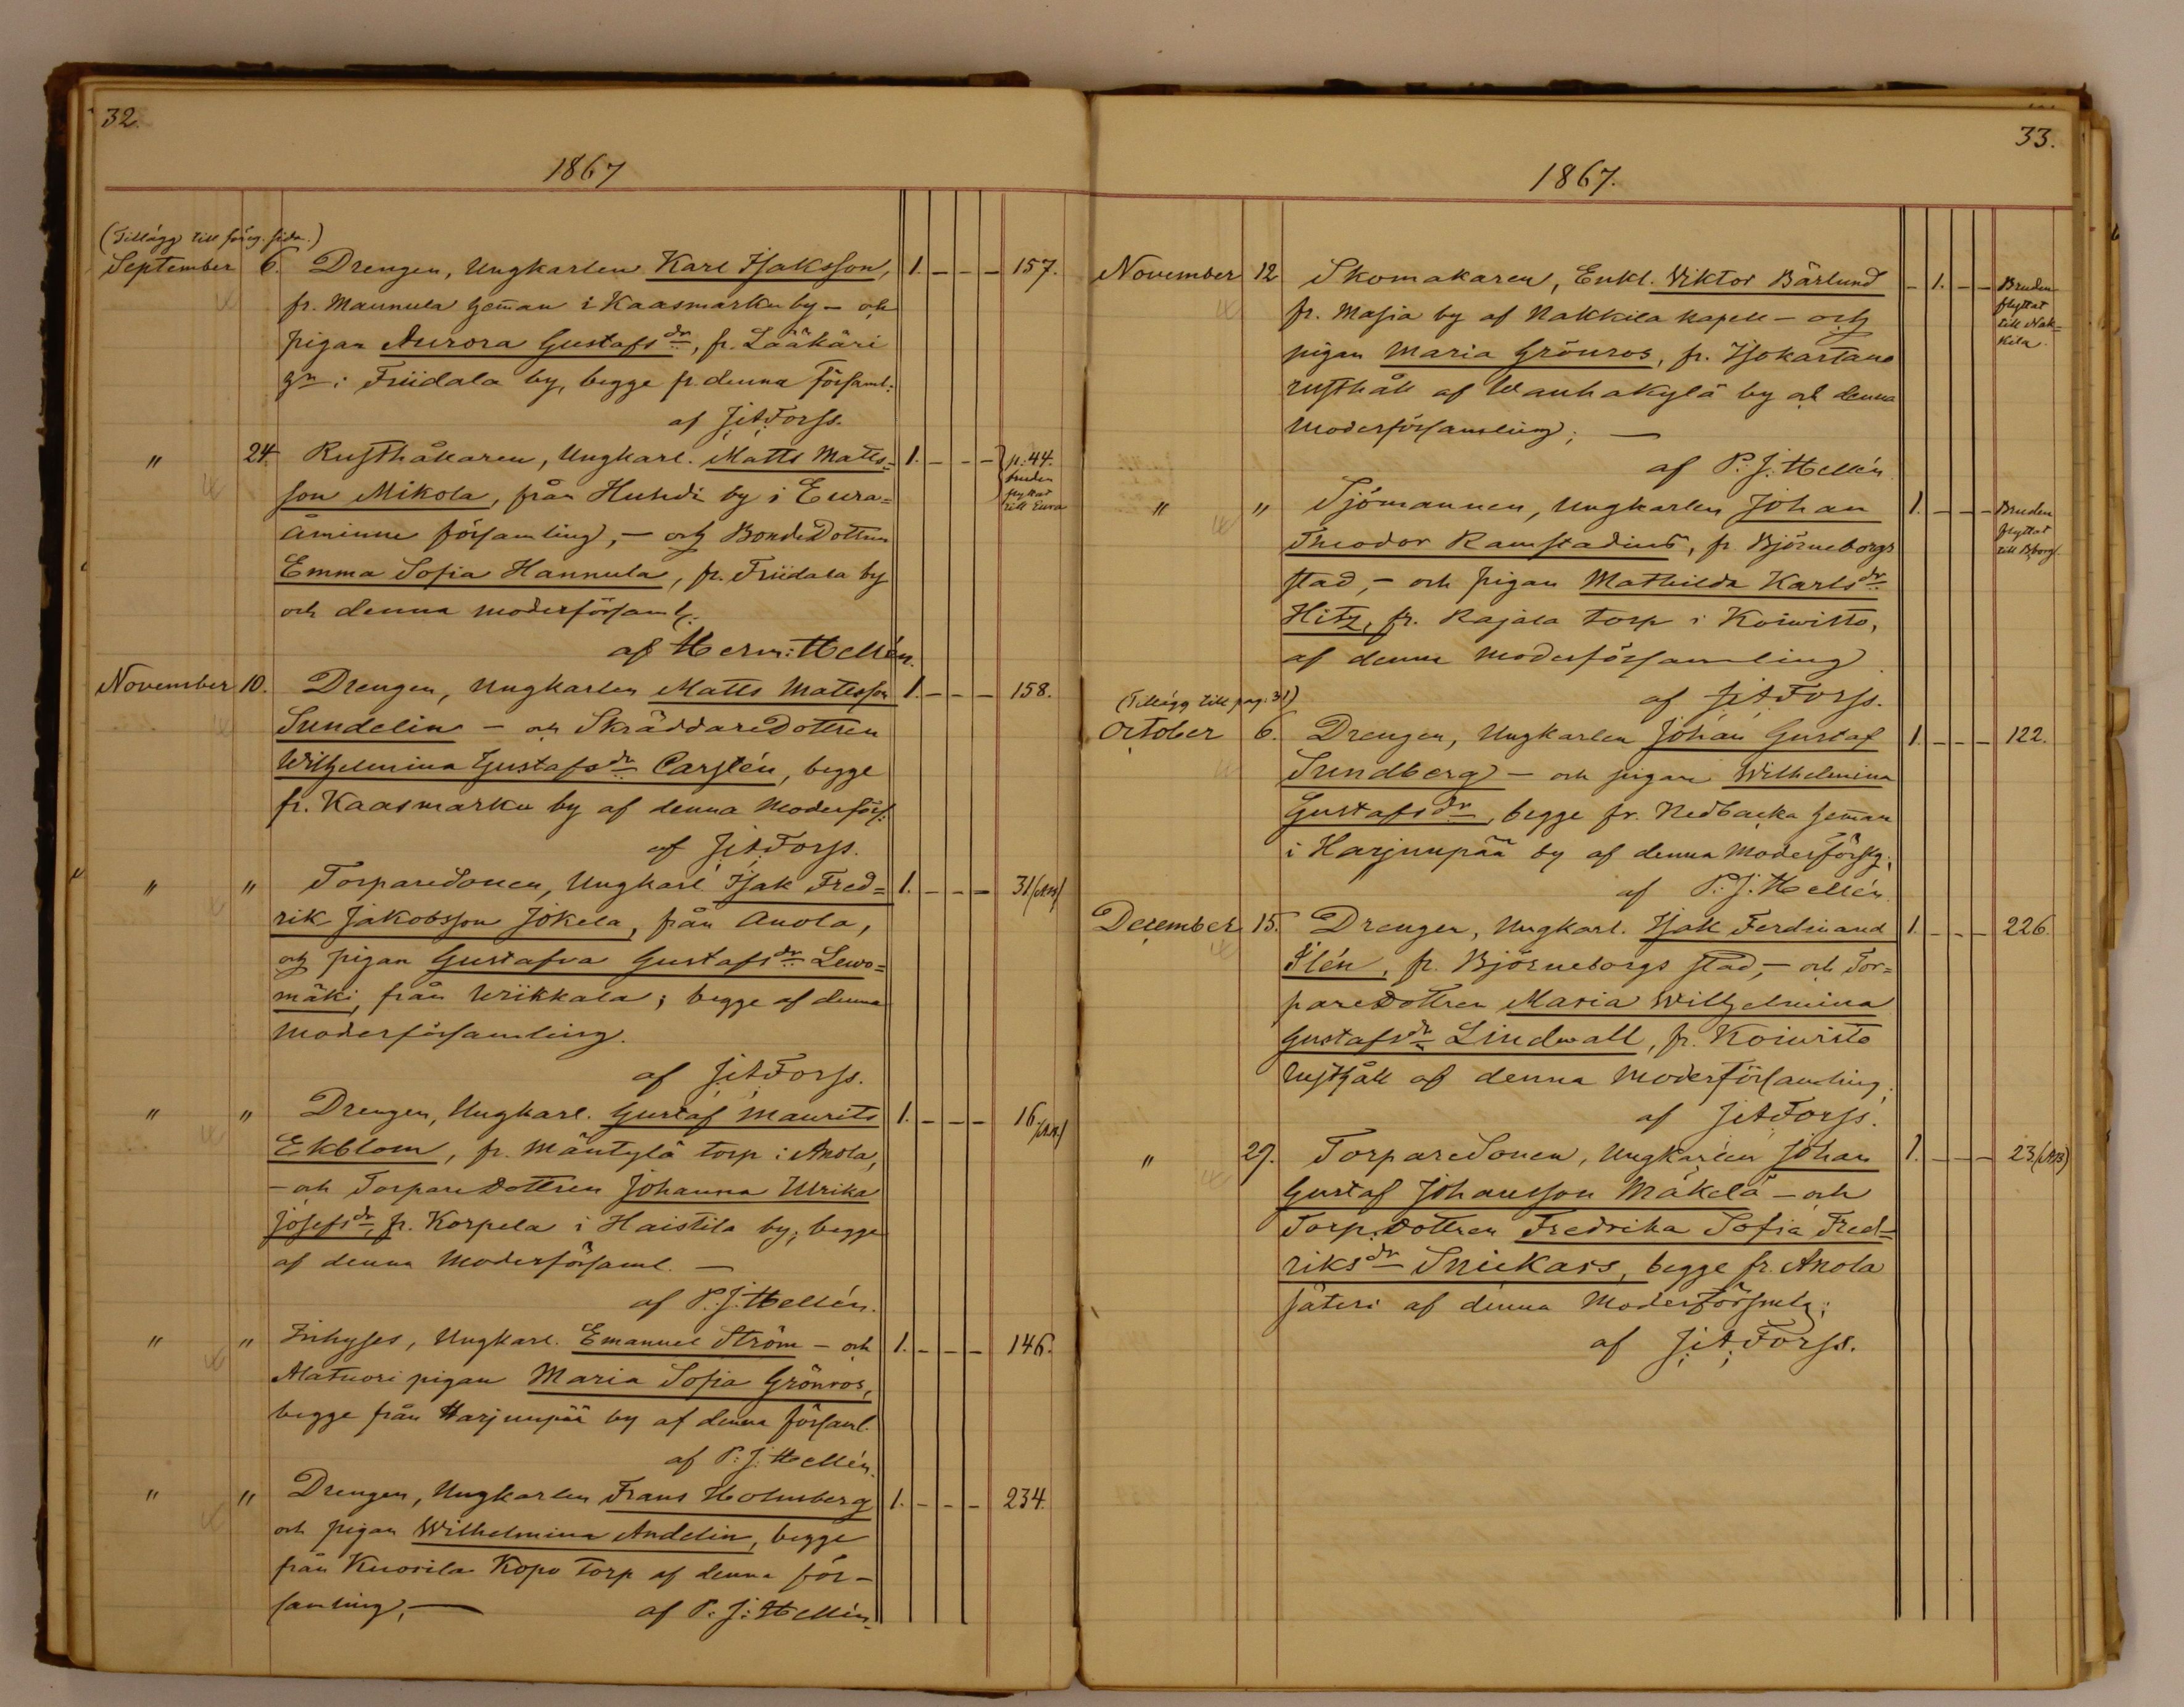 32.
1867
(Tillägg till föreg. sida.)
September 6. Drengen, Ungkarlen Karl Isaksson, 1. – – – 157.
fr. Maunula hem̄an i Kaasmarku by – och
pigan Aurora Gustafsdr, fr. Lääkäri
gn i Friidala by, begge fr. denna församl:
af J. A. Forss.
" 24. Rusthållaren, Ungkarl. Matts Matts- 1. – – – p. 44.
son Mikola, från Huhdi by i Eura= bruden
åminne församling, – och BondeDottren flyttat
Emma Sofia Hannula, fr. Friidala by till Eura
och denna moderförsaml.
af Herm: Hellén.
November 10. Drengen, Ungkarlen Matts Mattsson 1. – – – 158.
Sundelin – och SkräddareDottren
Wilhelmina Gustafsdr Carstén, begge
fr. Kaasmarku by af denna Moderförs:
af J. A. Forss.
" " TorpareSonen, Ungkarl. Isak Fred= 1. – – – 31
rik Jakobsson Jokela, från Anola,
och pigan Gustafva Gustafsdr Lewo=
mäki, från Wiikkala; begge af denna
Moderförsamling.
af J. A. Forss.
" " Drengen, Ungkarl. Gustaf Maurits 1. – – – 16.
Ekblom, fr. Mäntylä torp i Anola,
– och TorpareDottren Johanna Ulrika
Josefsdr, fr. Korpela i Haistila by; begge
af denna Moderförsaml. –
af P. J. Hellén.
" " Inhyses, Ungkarl. Emanuel Ström – och 1. – – – 146.
Alatuori pigan Maria Sofia Grönroos,
begge från Harjunpää by af denna församl.
af P. J. Hellén.
" " Drengen, Ungkarlen Frans Holmberg 1. – – – 234.
och pigan Wilhelmina Andelin, begge
från Knorila Kopo Torp af denna för-
samling, – af P. J. Hellén.
33.
1867.
November 12 Skomakaren, Enkl. Viktor Bärlund – 1. – – Bruden
fr. Masia by af Nakkila kapell – och flyttat
pigan Maria Grönroos, fr. Isokartano till Nak=
rusthåll af Wanhakylä by och denna kila.
Moderförsamling; –
af P. J. Hellén
" " Sjömannen, Ungkarlen Johan 1. – – – Bruden
Theodor Ramstadius, fr. Björneborgs flyttat
stad, – och pigan Mathilda Karlsdr till Bborg.
Hitz, fr. Rajala torp i Koiwisto,
af denna Moderförsamling
af J. A. Forss.
(Tillägg till pag. 31)
October 6. Drengen, Ungkarlen Johan Gustaf 1. – – – 122.
Sundberg – och pigan Wilhelmina
Gustafsdr, begge fr. Nedbacka hem̄an
i Harjunpää by af denna Moderförsg.
af P. J. Hellén
December 15. Drengen, Ungkarl. Isak Ferdinand 1. – – – 226.
Flén, fr. Björneborgs stad, – och Tor=
pareDottren Maria Wilhelmina
Gustafsdr Lindwall, fr. Koiwisto
rusthåll af denna Moderförsamling
af J. A. Forss.
" 29. TorpareSonen, Ungkarlen Johan 1. – – – 23
Gustaf Johansson Mäkelä – och
Torp.Dottren Fredrika Sofia Fred=
riksdr Snickars, begge fr. Anola
säteri af denna Moderförsmlg;
af J. A. Forss.